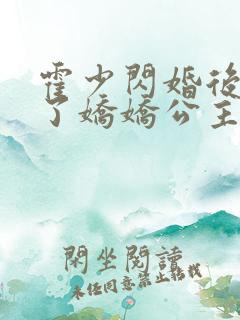 霍少閃婚後
了嬌嬌公主
閑坐閱讀
未经同意禁止转载